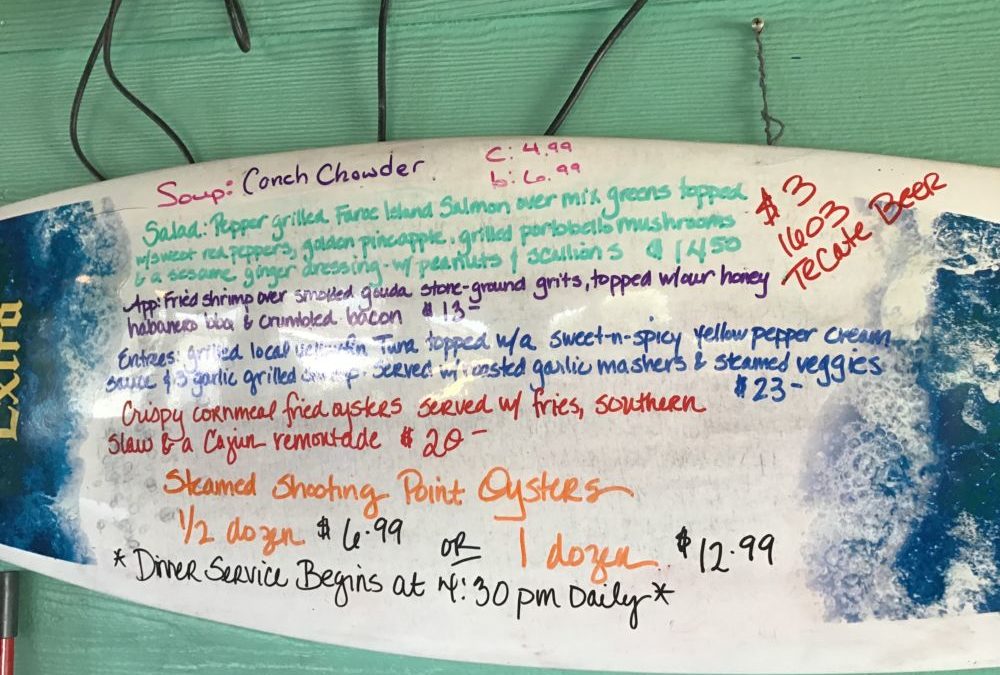 Extra
Soup: Conch Chowder
C: 4.99
b: 6.99
Salad: Pepper grilled Faroe Island Salmon over mix greens topped
w/sweet red peppers, golden pineapple, grilled portobello mushrooms
& a sesame ginger dressing w/ peanuts & scallions $ 1450
$ 3
16oz
Tecate Beer
App: Fried shrimp over smoked gouda stone-ground grits, topped w/our honey
habanero bbq & crumbled bacon $ 13-
Entrees: grilled local yellowfin Tuna topped w/a sweet-n-spicy yellow pepper cream
sauce & 3 garlic grilled shrimp. Served w/roasted garlic mashers & steamed veggies
$ 23-
Crispy cornmeal fried oysters served w/ fries, southern
slaw & a Cajun remoulade $ 20-
Steamed Shooting Point Oysters
1/2 dozen $ 6.99 OR 1 dozen $ 12.99
* Dinner Service Begins at 4:30 pm Daily *